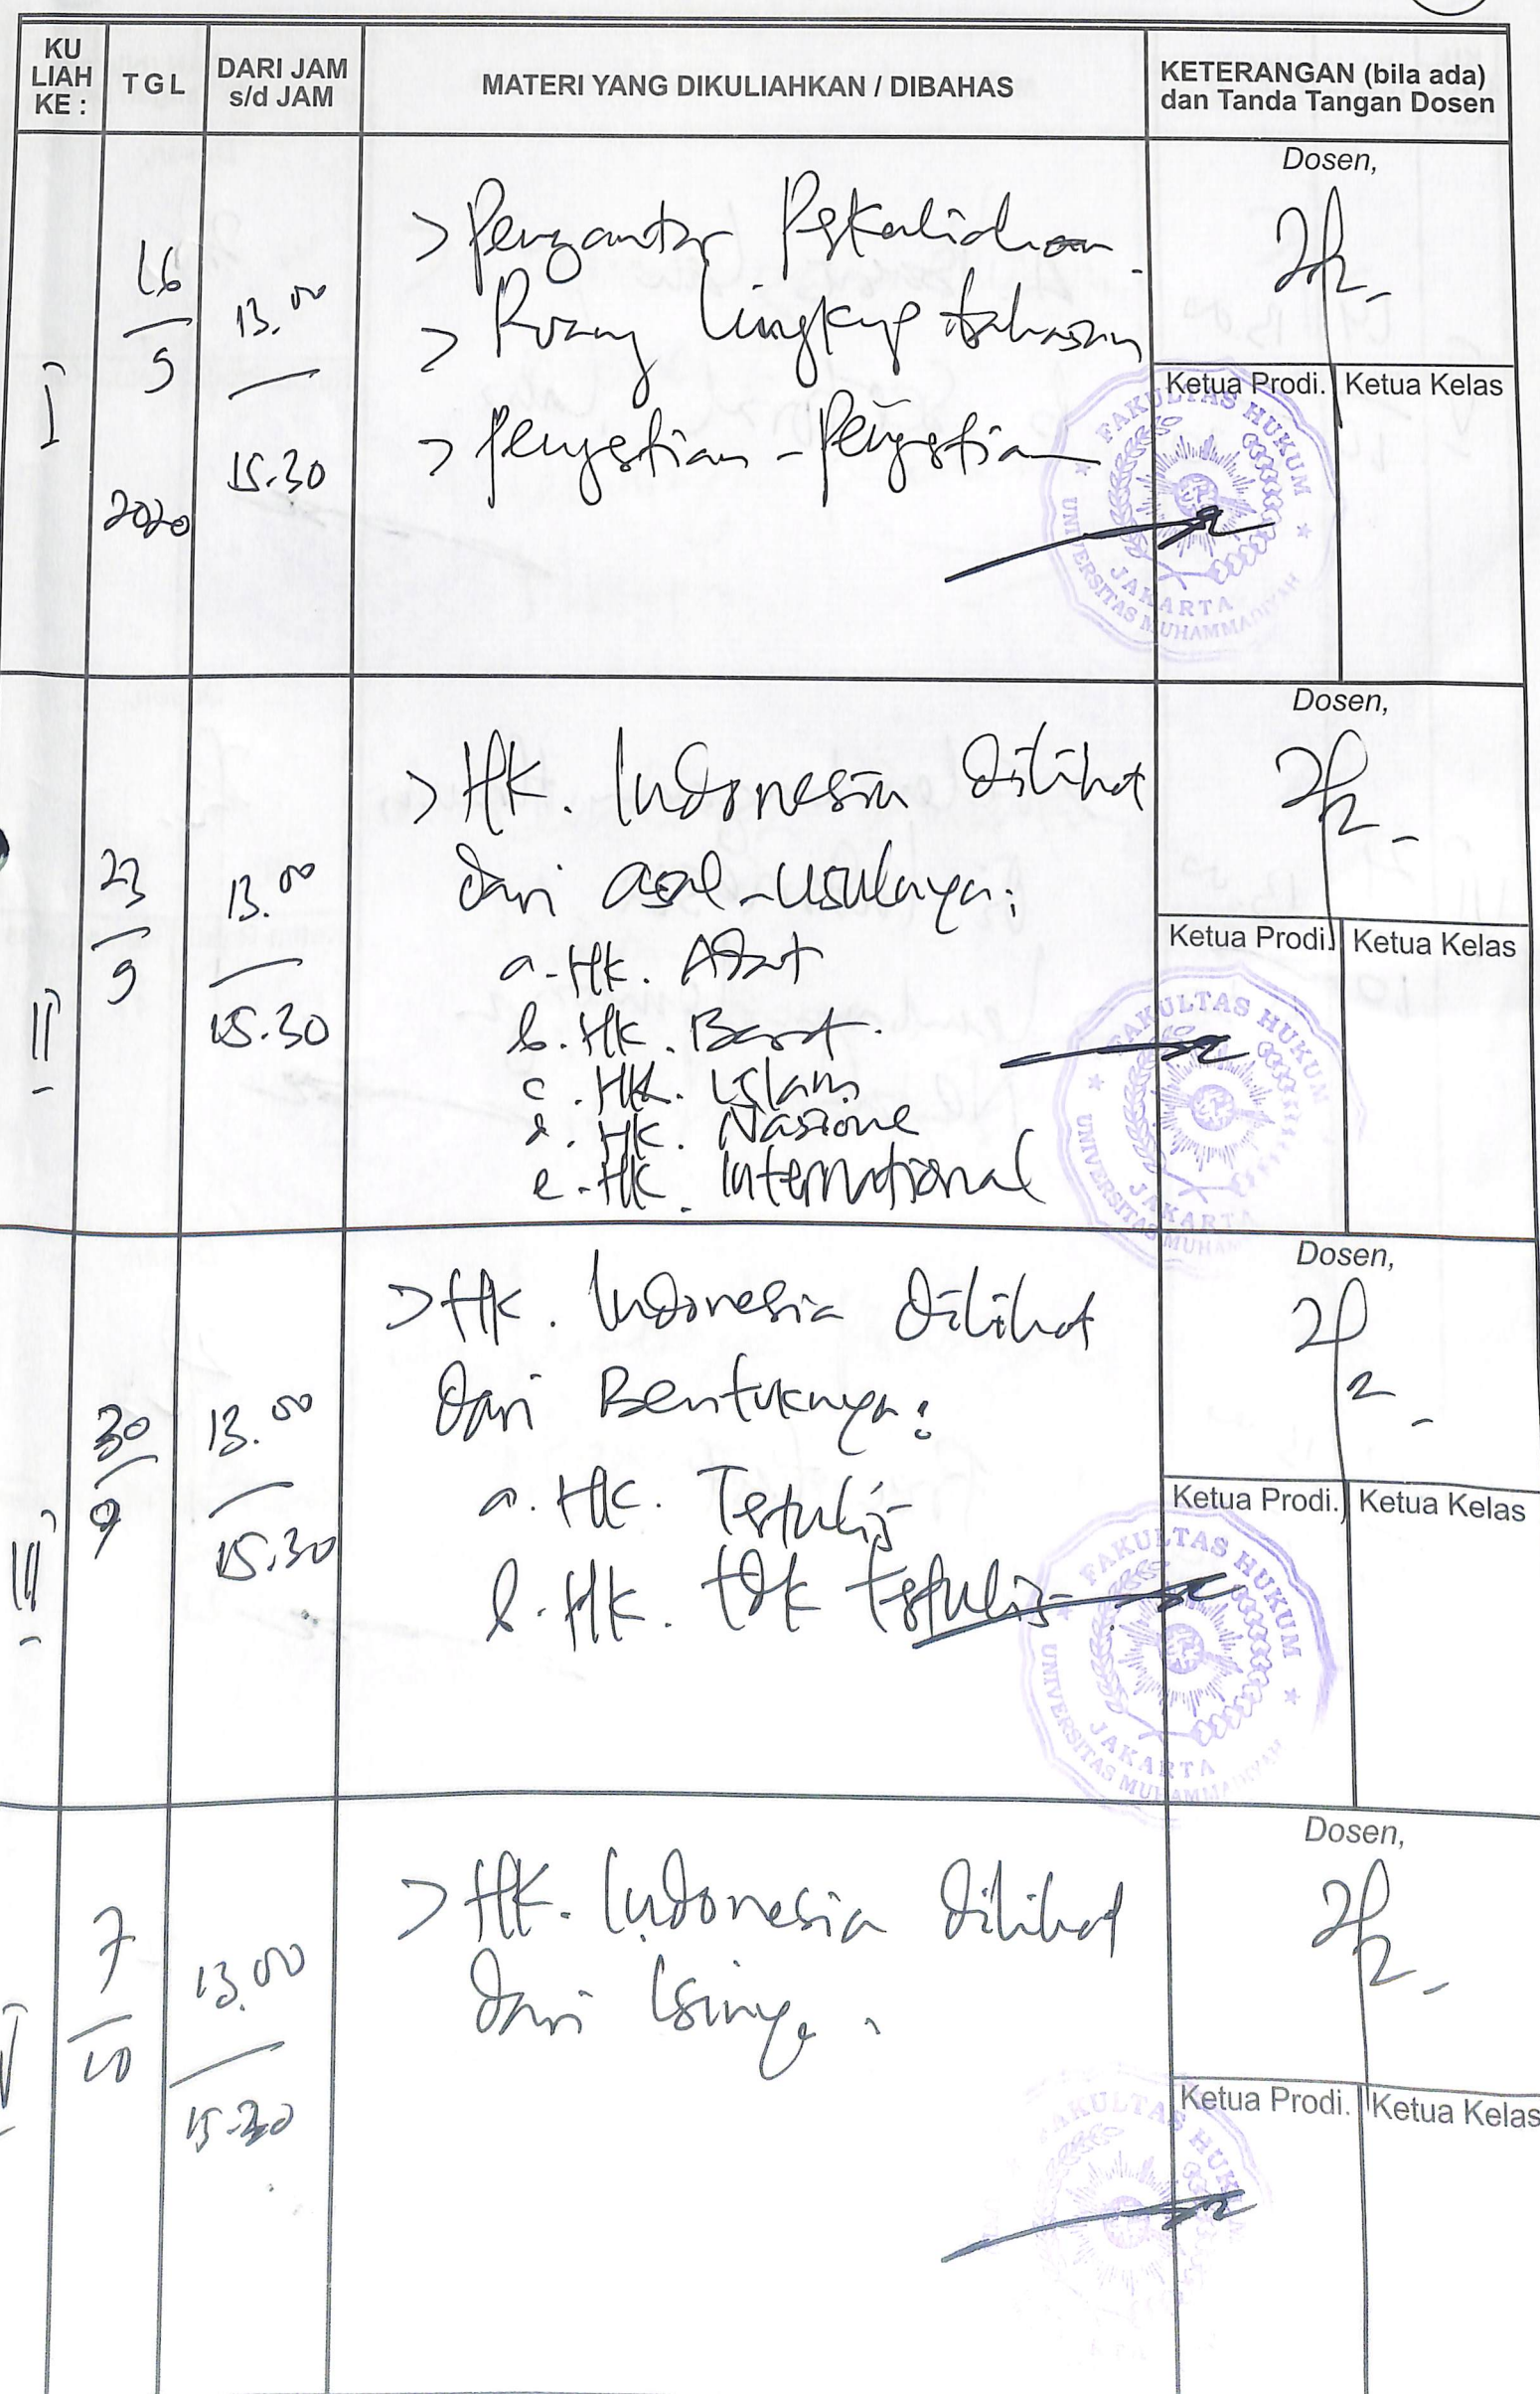 KU LIAH KE :
TGL
DARI JAM s/d JAM
MATERI YANG DIKULIAHKAN / DIBAHAS
KETERANGAN (bila ada) dan Tanda Tangan Dosen
I
16
9
2020
13.00
15.30
> Pengantar Perkuliahan.
> Ruang Lingkup bahasan
> Pengertian - Pengertian
Dosen,
Ketua Prodi.
Ketua Kelas
FAKULTAS HUKUM
UNIVERSITAS MUHAMMADIYAH
JAKARTA
II
23
9
13.00
15.30
> Hk. Indonesia dilihat
dari asal-usulnya:
a. Hk. Adat
b. Hk. Barat.
c. Hk. Islam
d. Hk. Nasional
e. Hk. International
Dosen,
Ketua Prodi.
Ketua Kelas
FAKULTAS HUKUM
UNIVERSITAS MUHAM
JAKARTA
III
30
9
13.00
15.30
> Hk. Indonesia dilihat
dari Bentuknya:
a. Hk. Tertulis
b. Hk. tdk tertulis
Dosen,
Ketua Prodi.
Ketua Kelas
FAKULTAS HUKUM
UNIVERSITAS MUHAMMADIYAH
JAKARTA
7
10
13.00
15.30
> Hk. Indonesia dilihat
dari Isinya.
Dosen,
Ketua Prodi.
Ketua Kelas
AKULTAS HUKUM